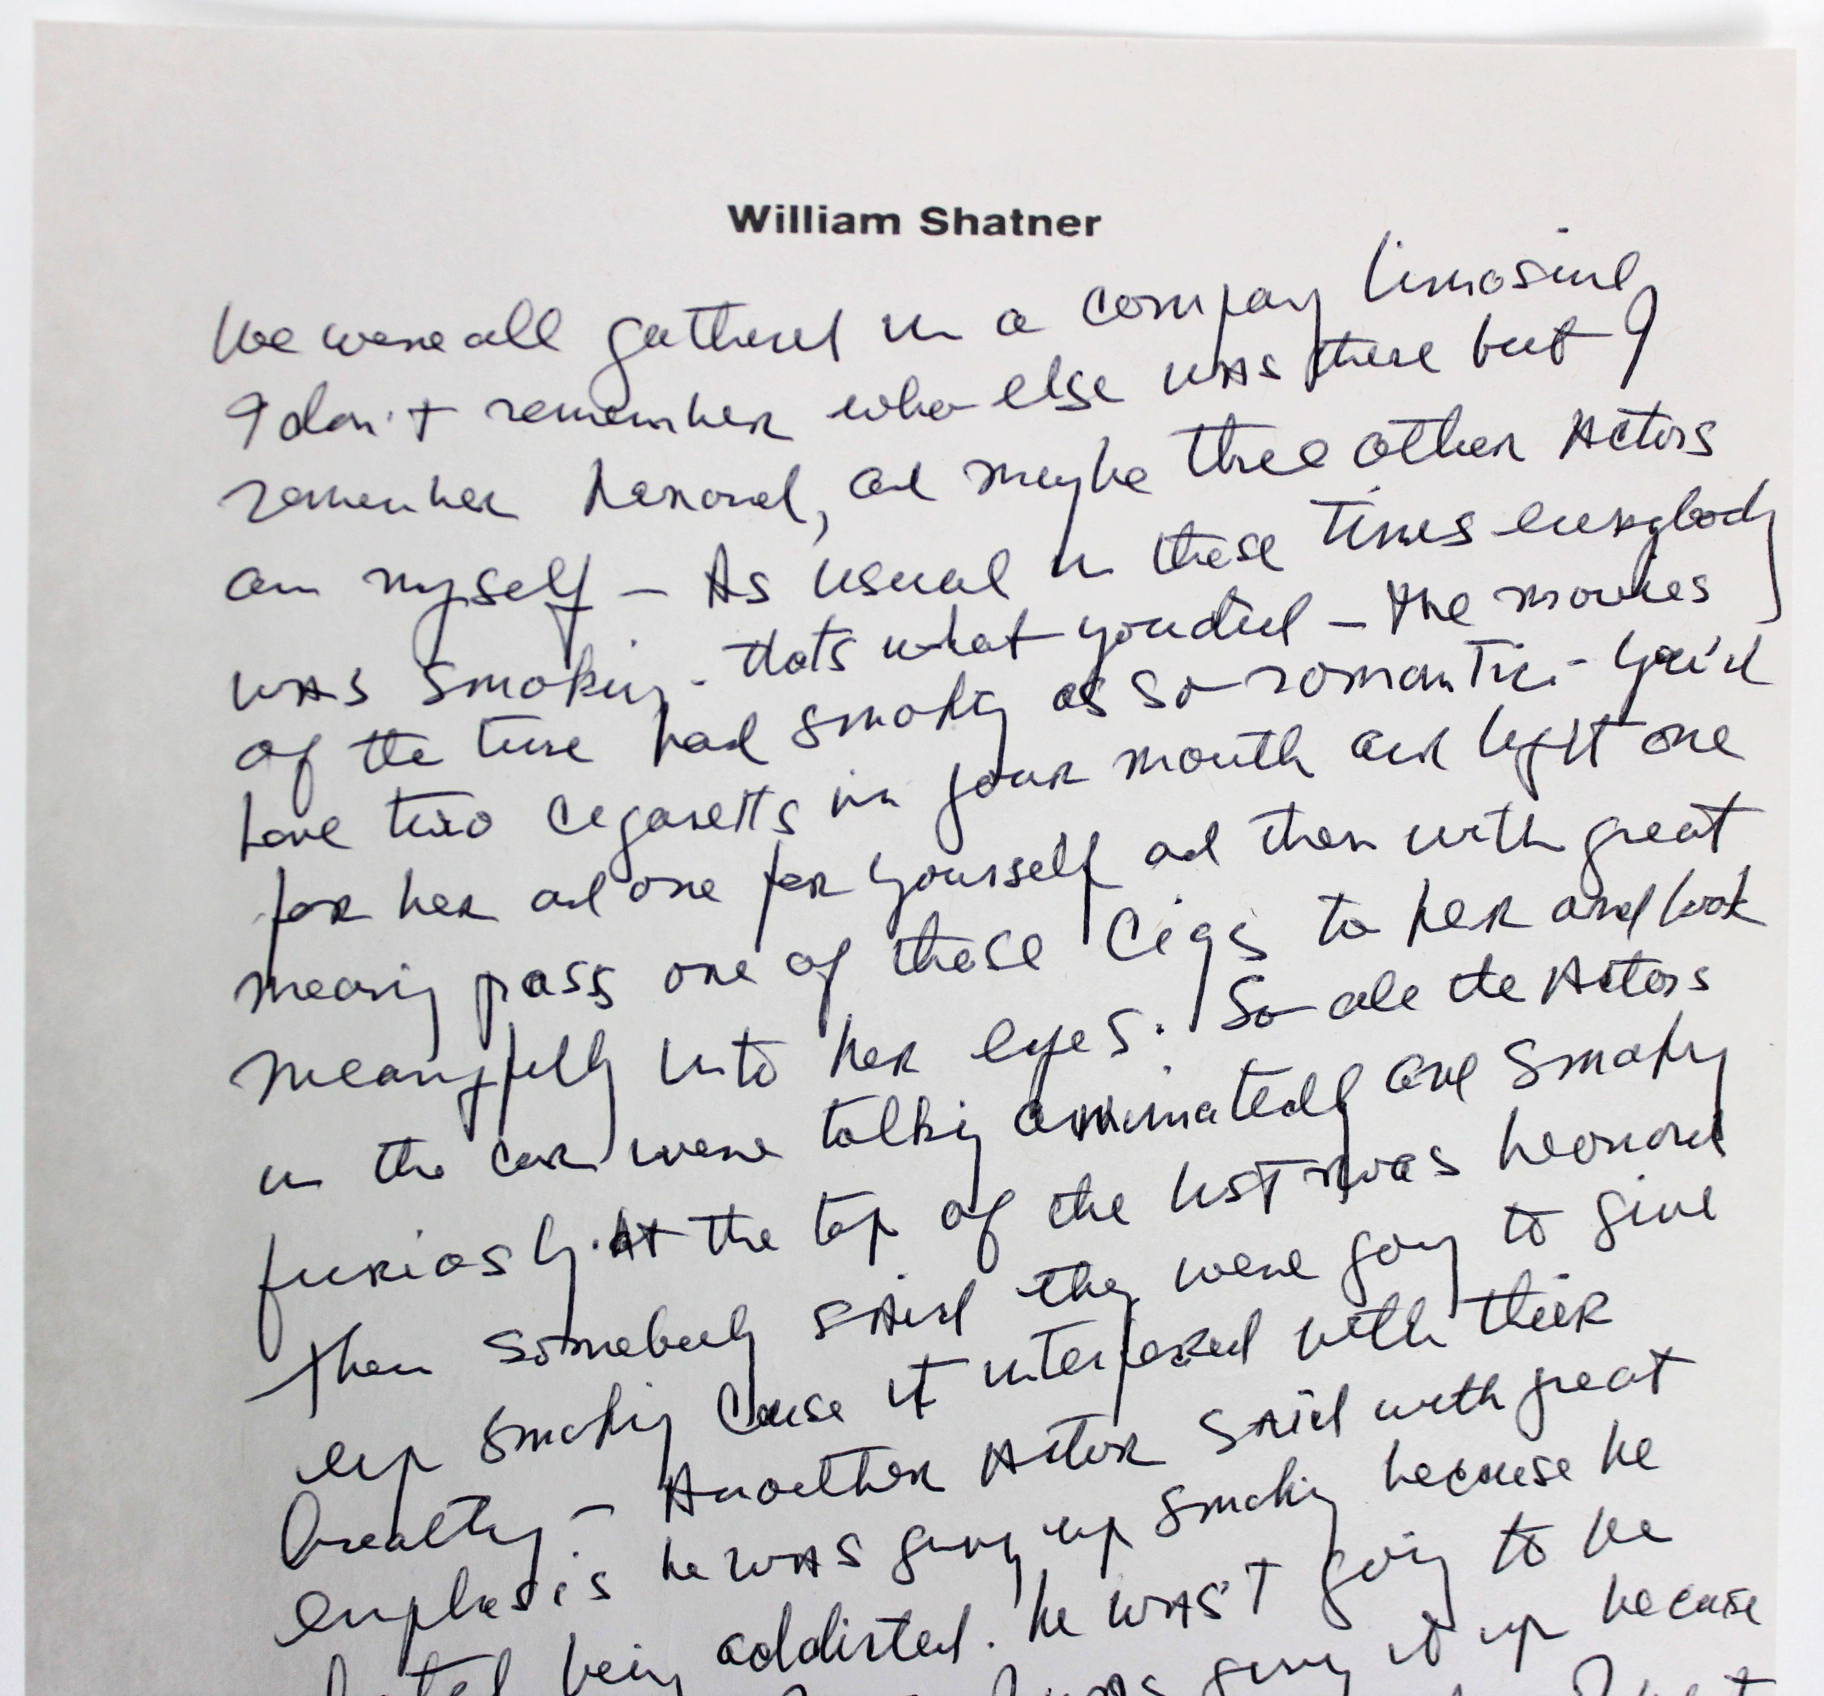 William Shatner
We were all gathered in a company limosine
I don't remember who else was there but I
remember Leonard, and maybe three other Actors
an myself - As usual in these times everybody
was smoking - thats what you did - the movies
of the time had smoking as so romantic - you'd
have two cigaretts in your mouth and light one
for her and one for yourself and then with great
meaning pass one of these Cigs to her and look
meaningfully into her eyes. So all the Actors
in the car were talking animatedly and smoking
furiosly. At the top of the list was Leonard
Then somebody said they were going to give
up smoking cause it interfered with their
breathing - Another Actor said with great
emphasis he was giving up smoking because he
hated being addicted. he wasn't going to be
was giving it up because